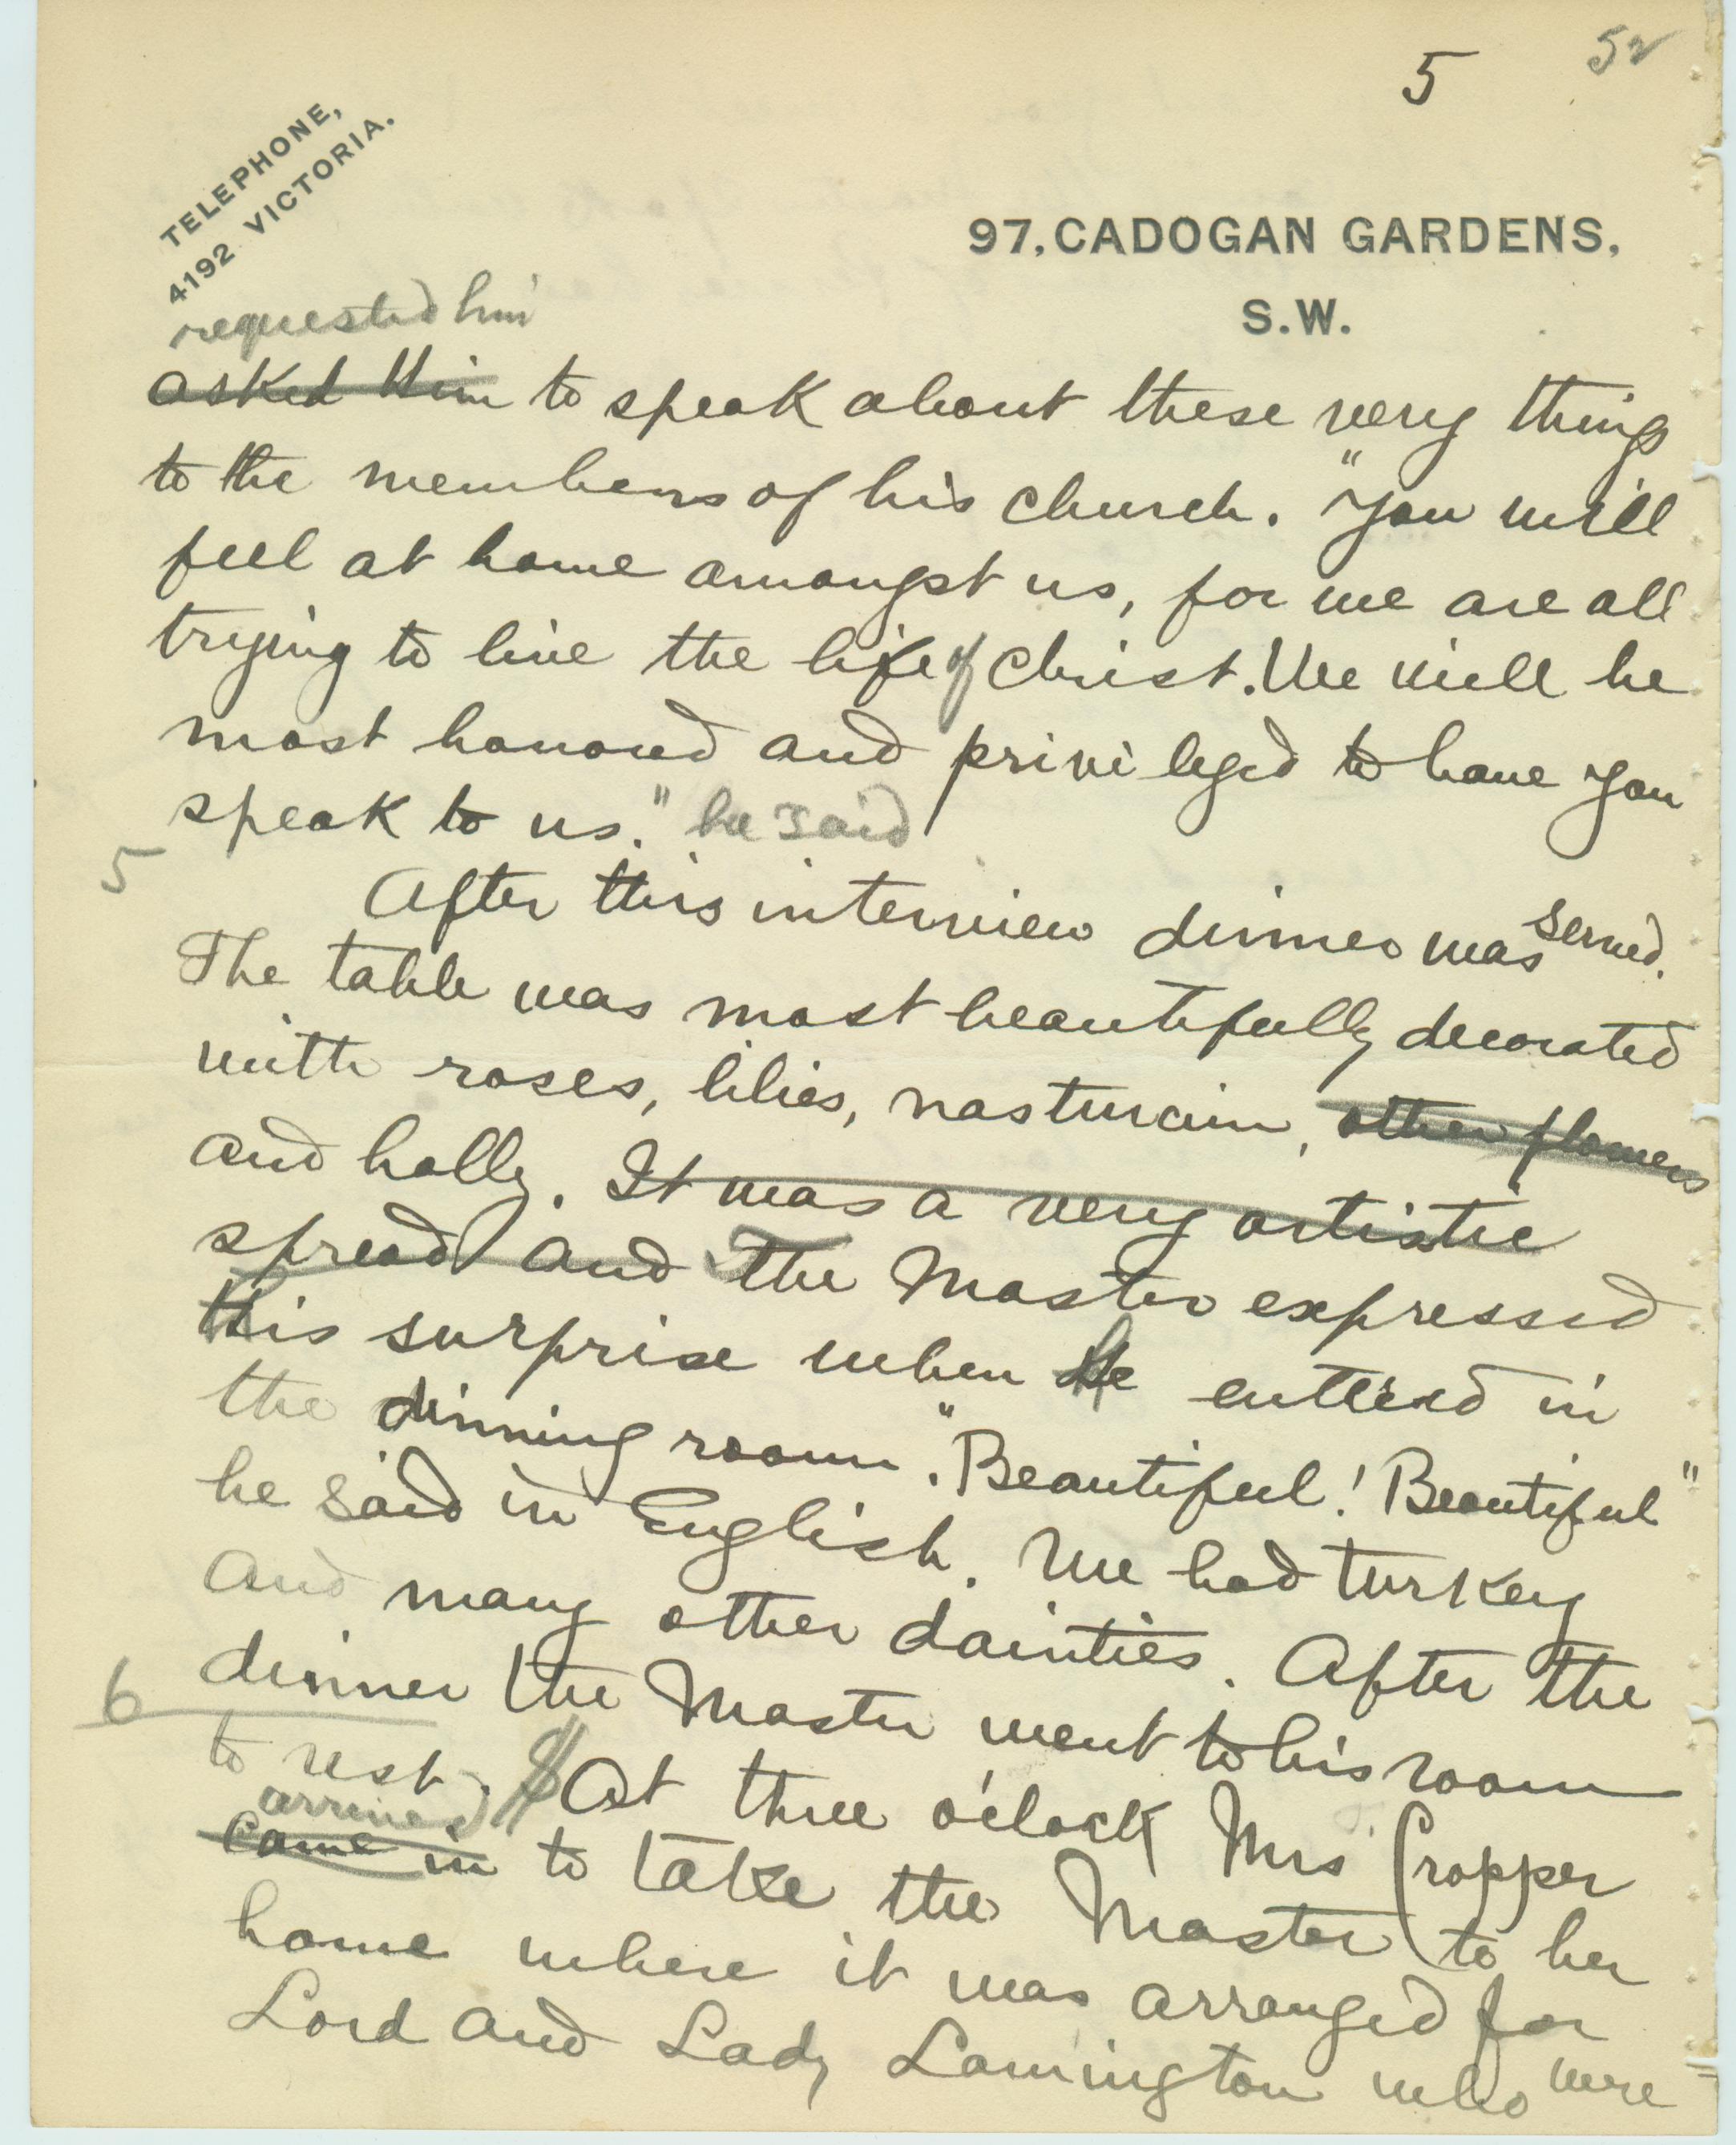 5 52
TELEPHONE,
4192 VICTORIA.
97, CADOGAN GARDENS,
S.W.
requested him
asked Him to speak about these very things
to the members of his church. "You will
feel at home amongst us, for we are all
trying to live the life of Christ. We will be
most honored and privileged to have you
speak to us." he said
5
After this interview dinner was served.
The table was most beautifully decorated
with roses, lilies, nasturcium, other flowers
and holly. It was a very artistic
spread and The Master expressed
his surprise when he entered in
the dinning room. "Beautiful! Beautiful"
he said in English. We had turkey
and many other dainties. After the
6
dinner the Master went to his room
to rest. At three o'clock Mrs Cropper
arrived
came in to take the Master to her
home where it was arranged for
Lord and Lady Lamington who were